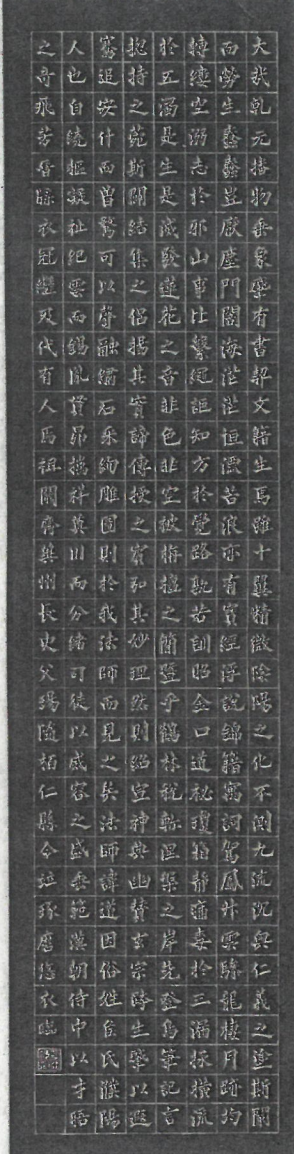 大哉乾元播物垂象肇有書契文籍生焉雖十翼精微陰陽之化不測九流沉奧仁義之塗斯闡
而勞生蠢蠢豈厭塵門閻海茫茫恒漂苦浪亦有寶經浮說錦籍寓詞駕鳳升雲驂龍棲月跡均
轉縷空溺志於邪山事比繫繩詎知方於覺路孰若訓昭金口道秘瓊箱靜痛毒於三漏拯橫流
於五濁是生是滅發蓮花之音非色非空被栴檀之簡暨乎鶴林稅軫涅槃之岸先登鳥筆記言
抱持之苑斯闢結集之侶揚其實諦傳授之賓弘其妙理然則紹宣神典幽贊玄宗跨生肇以遐
騫追安什而曾騖可以聲融繡石采絢雕圖則於我法師而見之矣法師諱道因俗姓侯氏濮陽
人也自繞樞凝祉紀雲而錫胤貫昴摛祥奠川而分緒司徒以威容之盛垂範漢朝侍中以才晤
之奇飛芳晉牒衣冠繼及代有人焉祖闕齊冀州長史父瑒隨柏仁縣令並琢磨悠衣臨